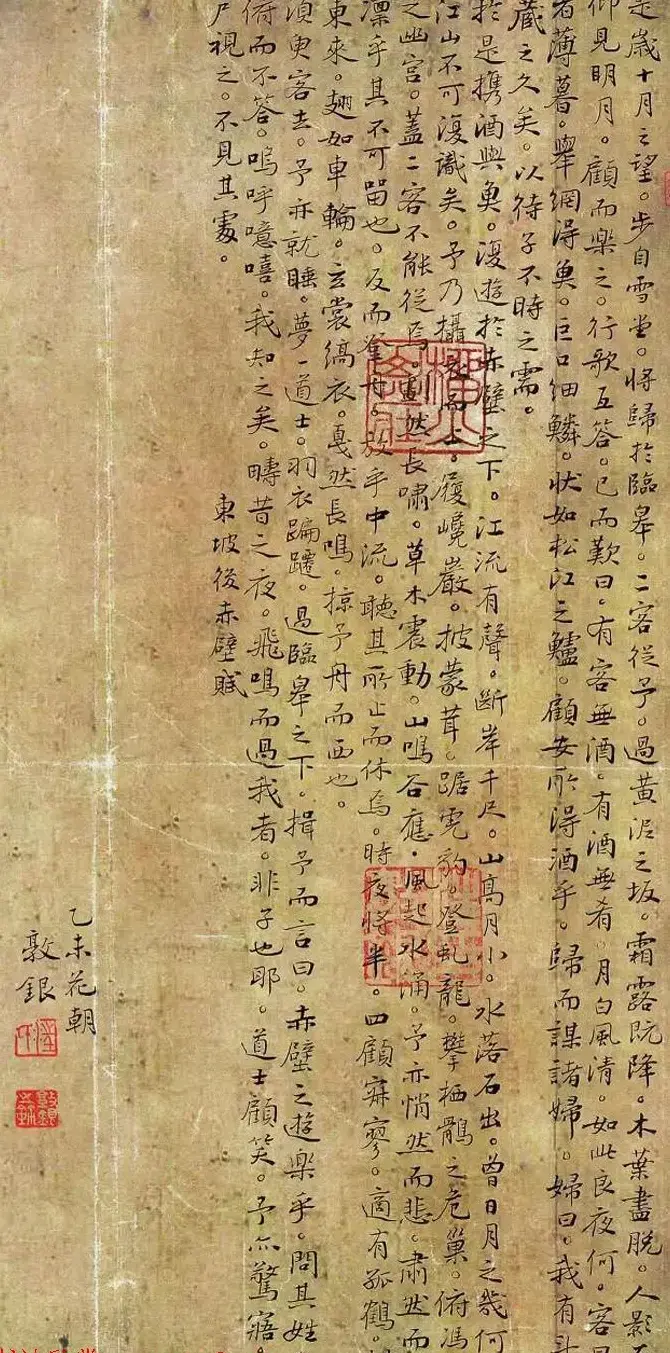 是歲十月之望。步自雪堂。將歸於臨皋。二客從予。過黃泥之坂。霜露既降。木葉盡脫。人影
仰見明月。顧而樂之。行歌互答。已而歎曰。有客無酒。有酒無肴。月白風清。如此良夜何。客曰
者薄暮。舉網得魚。巨口細鱗。狀如松江之鱸。顧安所得酒乎。歸而謀諸婦。婦曰。我有斗
藏之久矣。以待子不時之需。
於是攜酒與魚。復遊於赤壁之下。江流有聲。斷岸千尺。山高月小。水落石出。曾日月之幾何
江山不可復識矣。予乃攝衣而上。履巉巖。披蒙茸。踞虎豹。登虬龍。攀栖鶻之危巢。俯馮
之幽宮。蓋二客不能從焉。劃然長嘯。草木震動。山鳴谷應。風起水涌。予亦悄然而悲。肅然而
凜乎其不可留也。反而登舟。放乎中流。聽其所止而休焉。時夜將半。四顧寂寥。適有孤鶴。
東來。翅如車輪。玄裳縞衣。戛然長鳴。掠予舟而西也。
須臾客去。予亦就睡。夢一道士。羽衣蹁躚。過臨皋之下。揖予而言曰。赤壁之遊樂乎。問其姓
俯而不答。嗚呼噫嘻。我知之矣。疇昔之夜。飛鳴而過我者。非子也耶。道士顧笑。予亦驚寤。
戶視之。不見其處。
東坡後赤壁賦
乙未花朝
敦銀